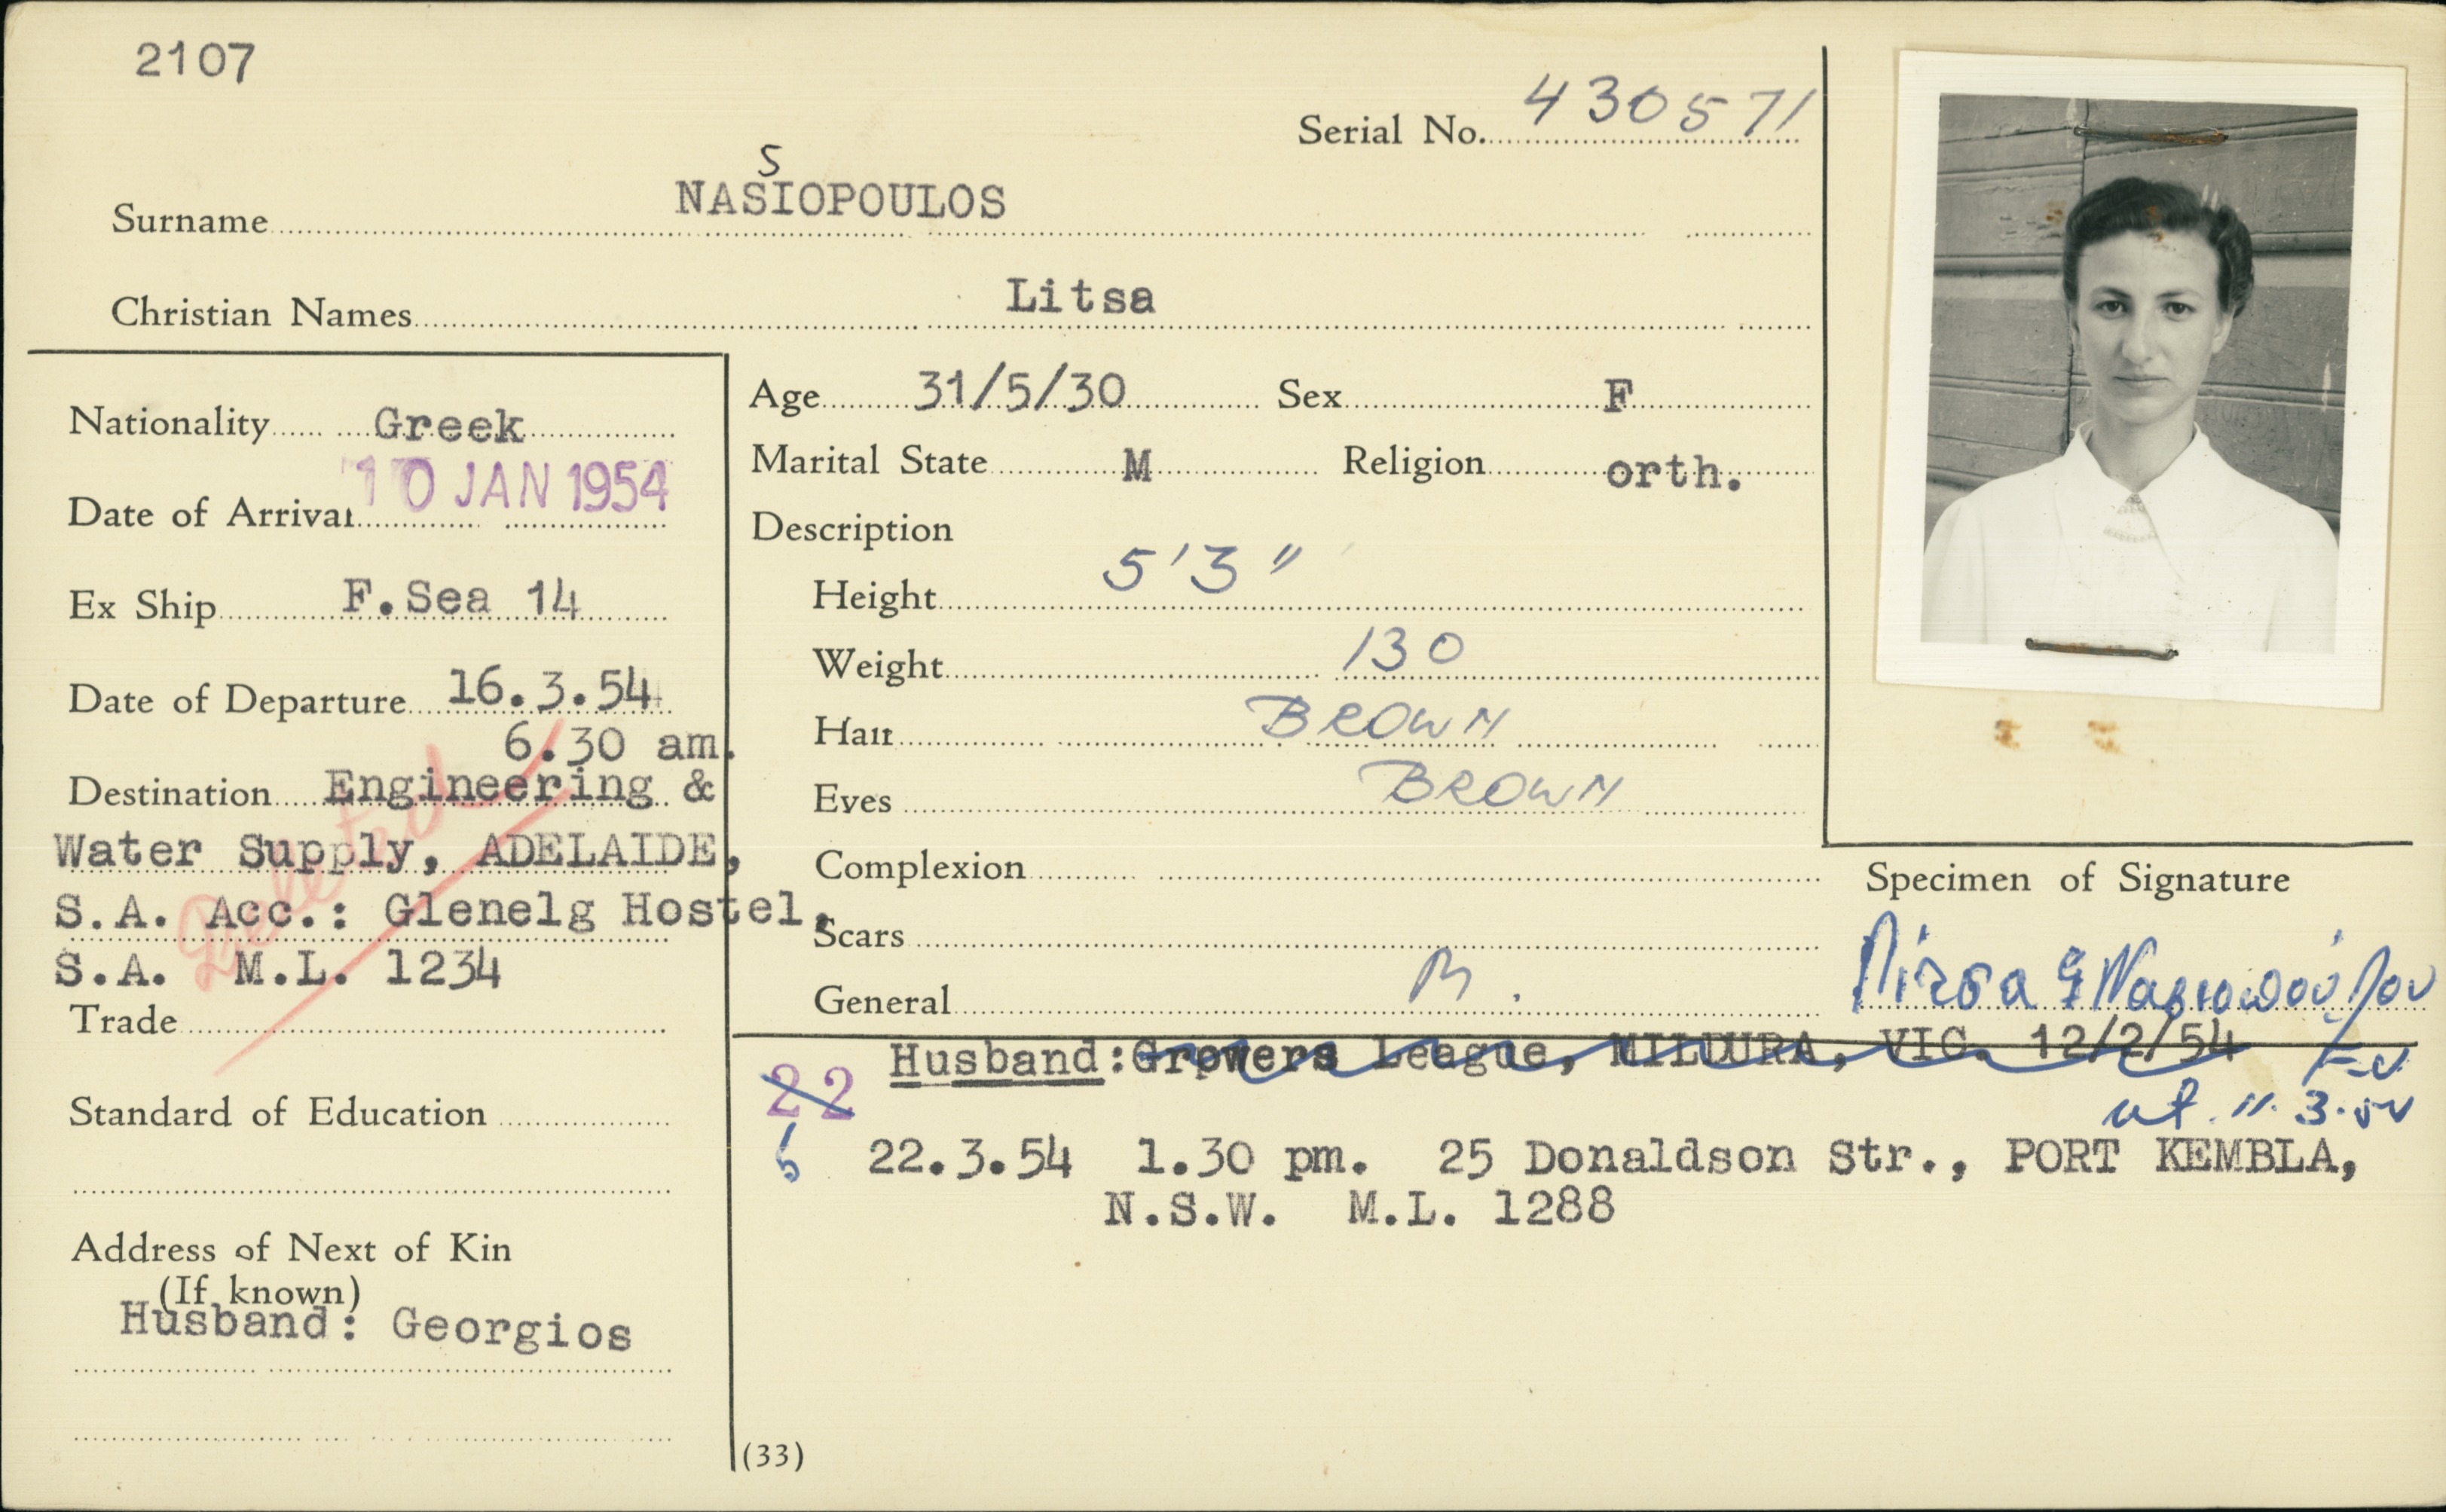 2107
Serial No. 430571
S
Surname NASIOPOULOS
Christian Names Litsa
Nationality Greek
Date of Arrival 10 JAN 1954
Ex Ship F.Sea 14
Date of Departure 16.3.54
6.30 am.
Destination Engineering &
Water Supply, ADELAIDE,
S.A. Acc.: Glenelg Hostel,
S.A. M.L. 1234
Deleted
Trade
Standard of Education
Address of Next of Kin
(If known)
Husband: Georgios
Age 31/5/30 Sex F
Marital State M Religion orth.
Description
Height 5'3"
Weight 130
Hair BROWN
Eyes BROWN
Complexion
Scars
General
Specimen of Signature
Λίτσα Γ Νασιοπούλου
Husband: Growers League, MILDURA, VIC. 12/2/54
22
5
22.3.54 1.30 pm. 25 Donaldson Str., PORT KEMBLA,
N.S.W. M.L. 1288
(33)